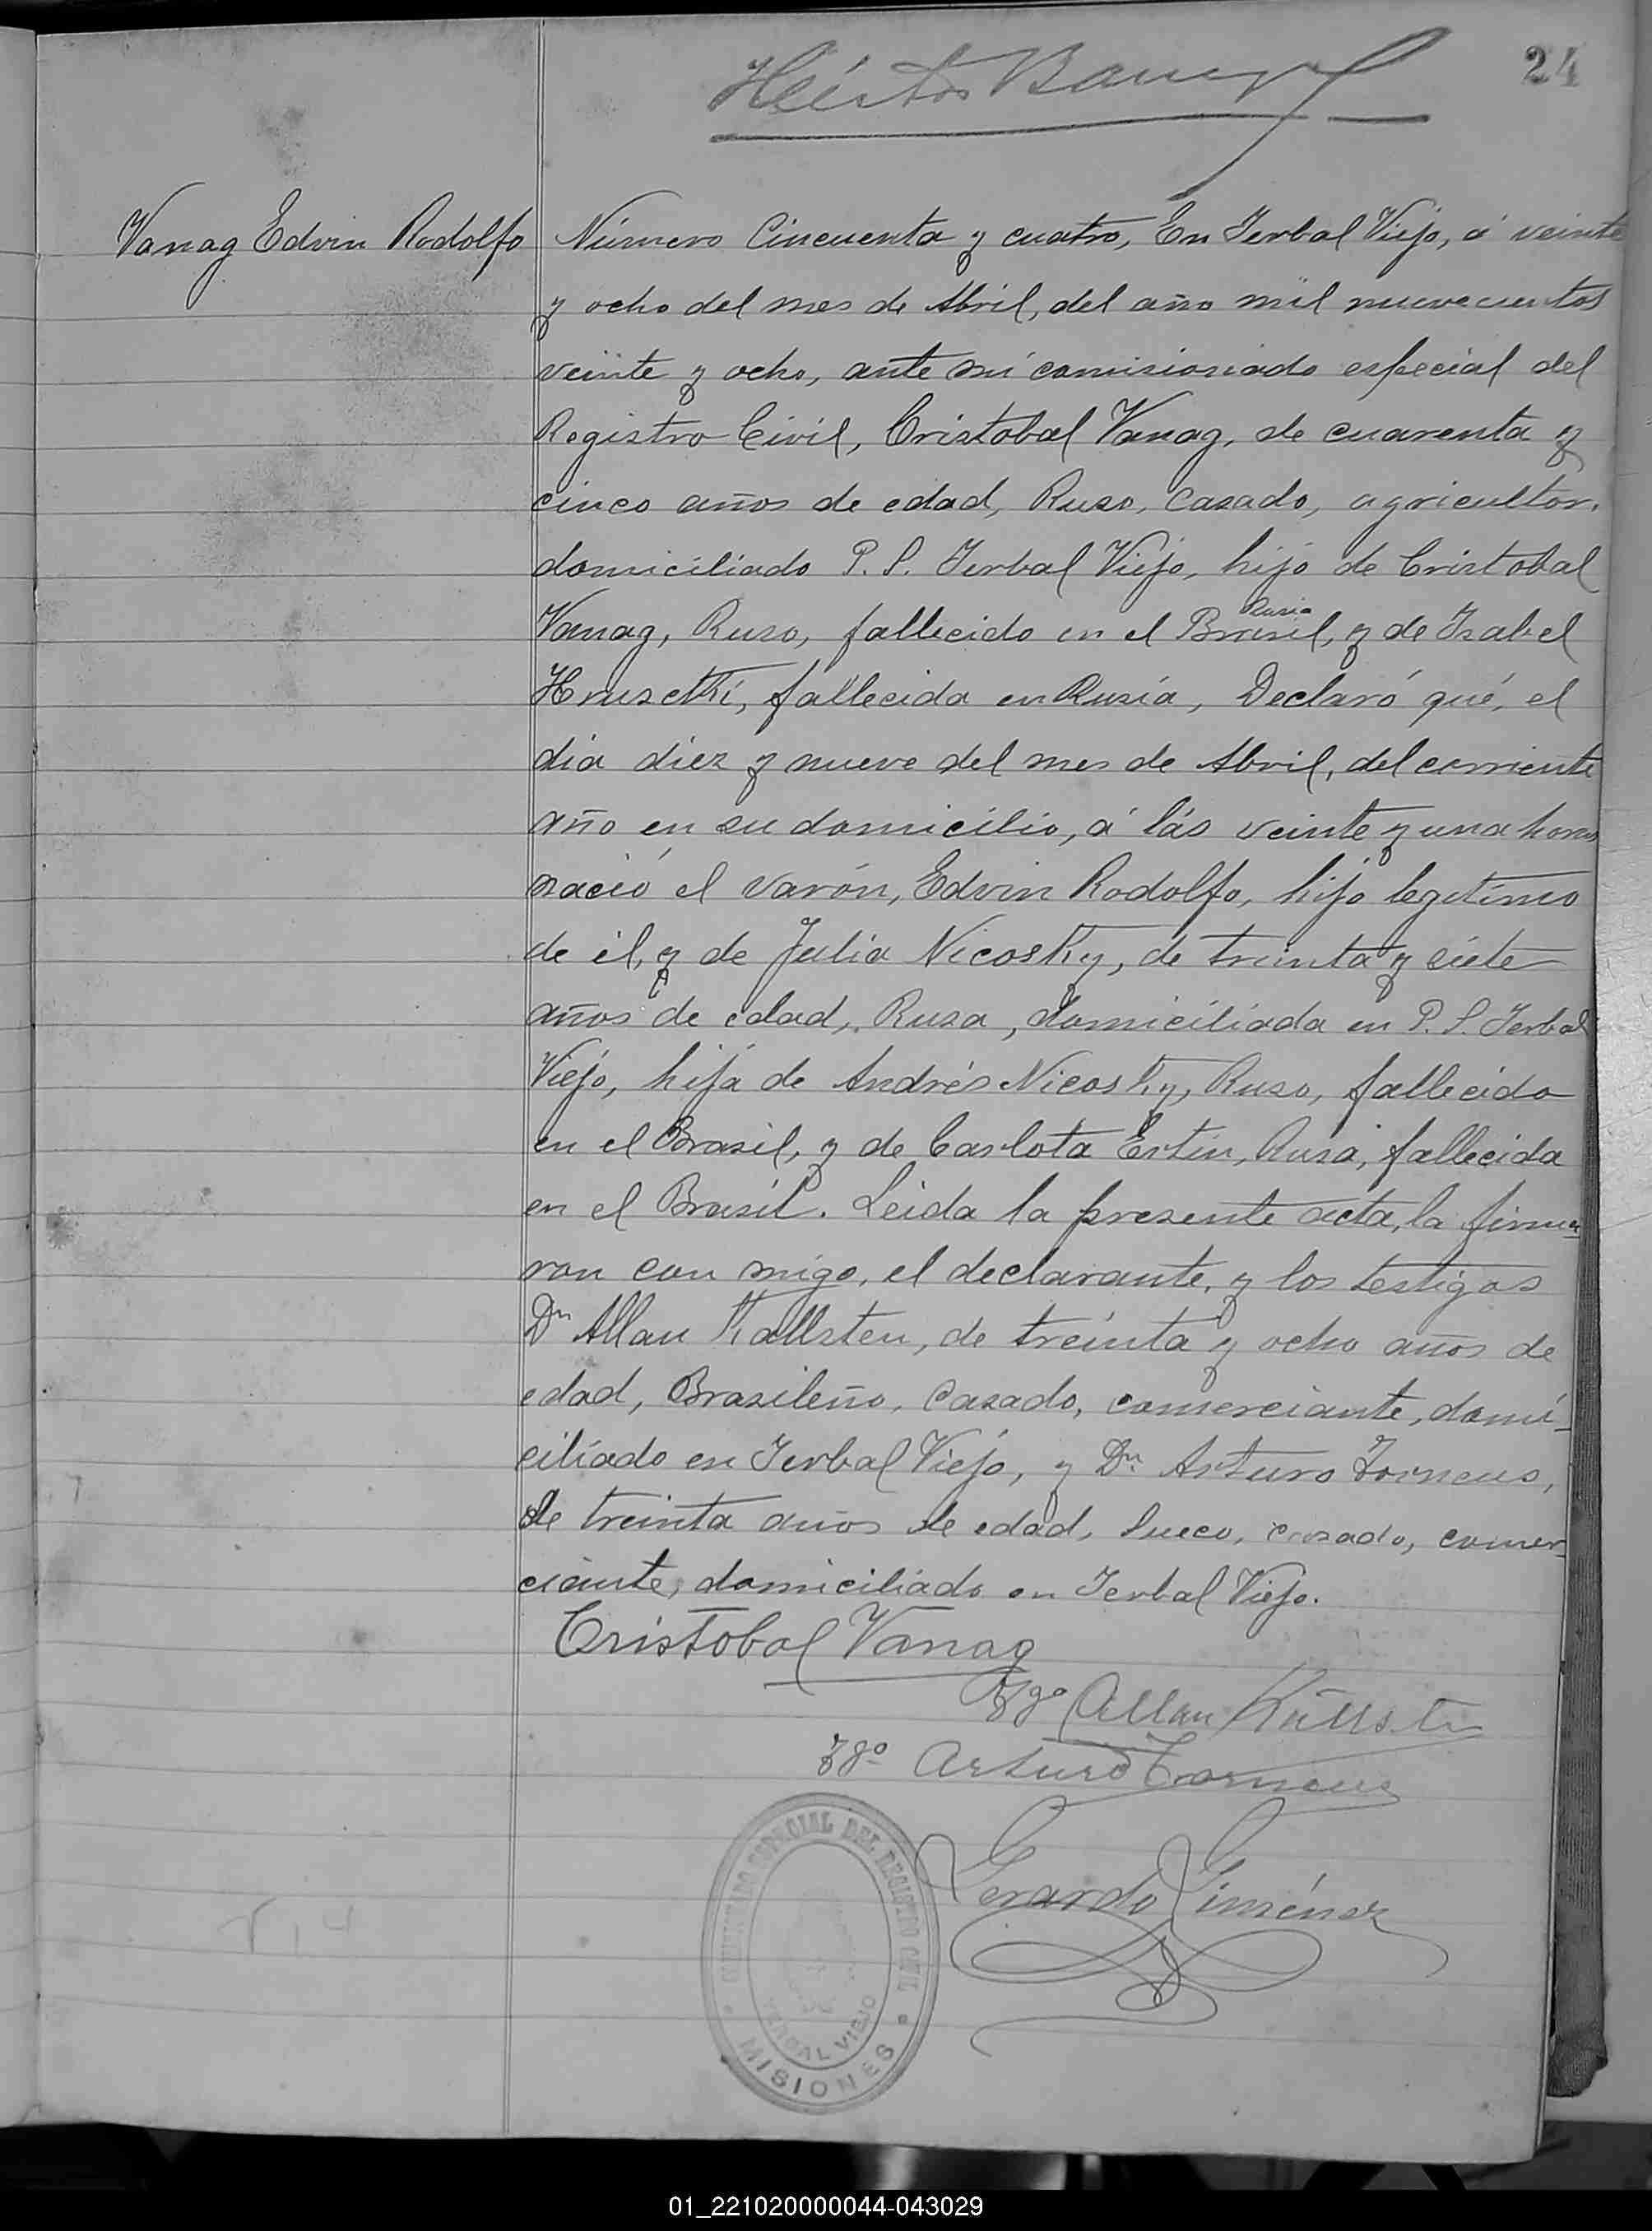 24
Vanag Edvin Rodolfo
Número Cincuenta y cuatro, En Yerbal Viejo, á veinte
y ocho del mes de Abril, del año mil nuevecientos
veinte y ocho, ante mí comisionado especial del
Registro Civil, Cristobal Vanag, de cuarenta y
cinco años de edad, Ruso, Casado, agricultor,
domiciliado P. P. Yerbal Viejo, hijo de Cristobal
Rusia
Vanag, Ruso, fallecido en el Brasil, y de Isabel
fallecida en Rusia, Declaró qué, el
dia diez y nueve del mes de Abril, del corriente
año en su domicilio, á lás veinte y una horas
nació el varón, Edvin Rodolfo, hijo legitimo
de él, y de Julia Nicosky, de treinta y siete
años de edad, Rusa, domiciliada en P. P. Yerbal
Viejo, hija de Andrés Nicosky, Ruso, fallecido
en el Brasil, y de Carlota Ertin, Rusa, fallecida
en el Brasil. Leida la presente acta, la firma
ron con migo, el declarante, y los testigos
Dn Allan Kallsten, de treinta y ocho años de
edad, Brasileño, Casado, comerciante, domi-
ciliado en Yerbal Viejo, y Dn. Arturo Torneus,
de treinta años de edad, Sueco, casado, comer-
ciante, domiciliado en Yerbal Viejo.
Cristobal Vanag
Tgo Allan Källstén
Tgo Arturo Torneus
Gerardo Giménez
COMISIONADO ESPECIAL DEL REGISTRO CIVIL
YERBAL VIEJO
MISIONES
01_221020000044-043029